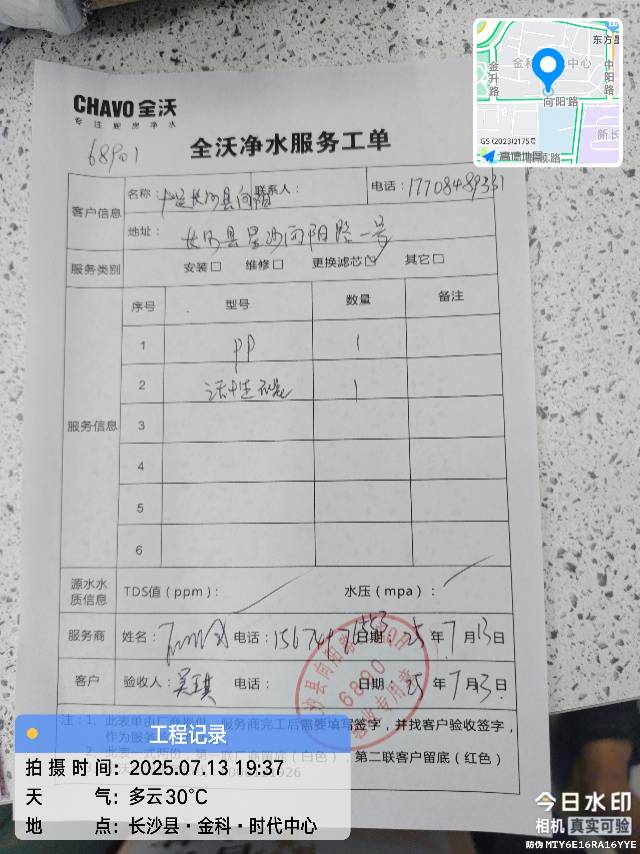 CHAVO 全沃
专注厨房净水
68901
全沃净水服务工单
客户信息
名称： 长沙县向阳 联系人： 电话：17708489331
地址： 长沙县星沙向阳路一号
服务类别 安装□ 维修□ 更换滤芯☑ 其它□
服务信息
序号 型号 数量 备注
1 PP 1
2 活性炭 1
3
4
5
6
源水水质信息 TDS值（ppm）： 水压（mpa）：
服务商 姓名： 电话： 日期：25年7月13日
客户 验收人：吴琪 电话： 日期：25年7月13日
注：1、此表单由厂商提供，服务商完工后需要填写签字，并找客户验收签字，
作为服务
2、此表一式两份，第一联厂商留底（白色），第二联客户留底（红色）
工程记录
拍摄时间：2025.07.13 19:37
天气：多云30°C
地点：长沙县·金科·时代中心
今日水印
相机 真实可验
防伪 MTY6E16RA16YYE
金科时代中心
东方星
金升路
中阳路
向阳路
新长
GS(2023)2175号
高德地图